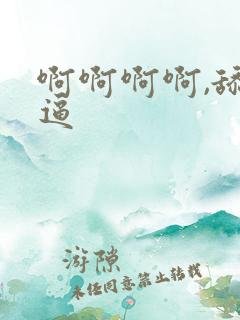 啊啊啊啊,舔
逼
游隙
未经同意禁止转载